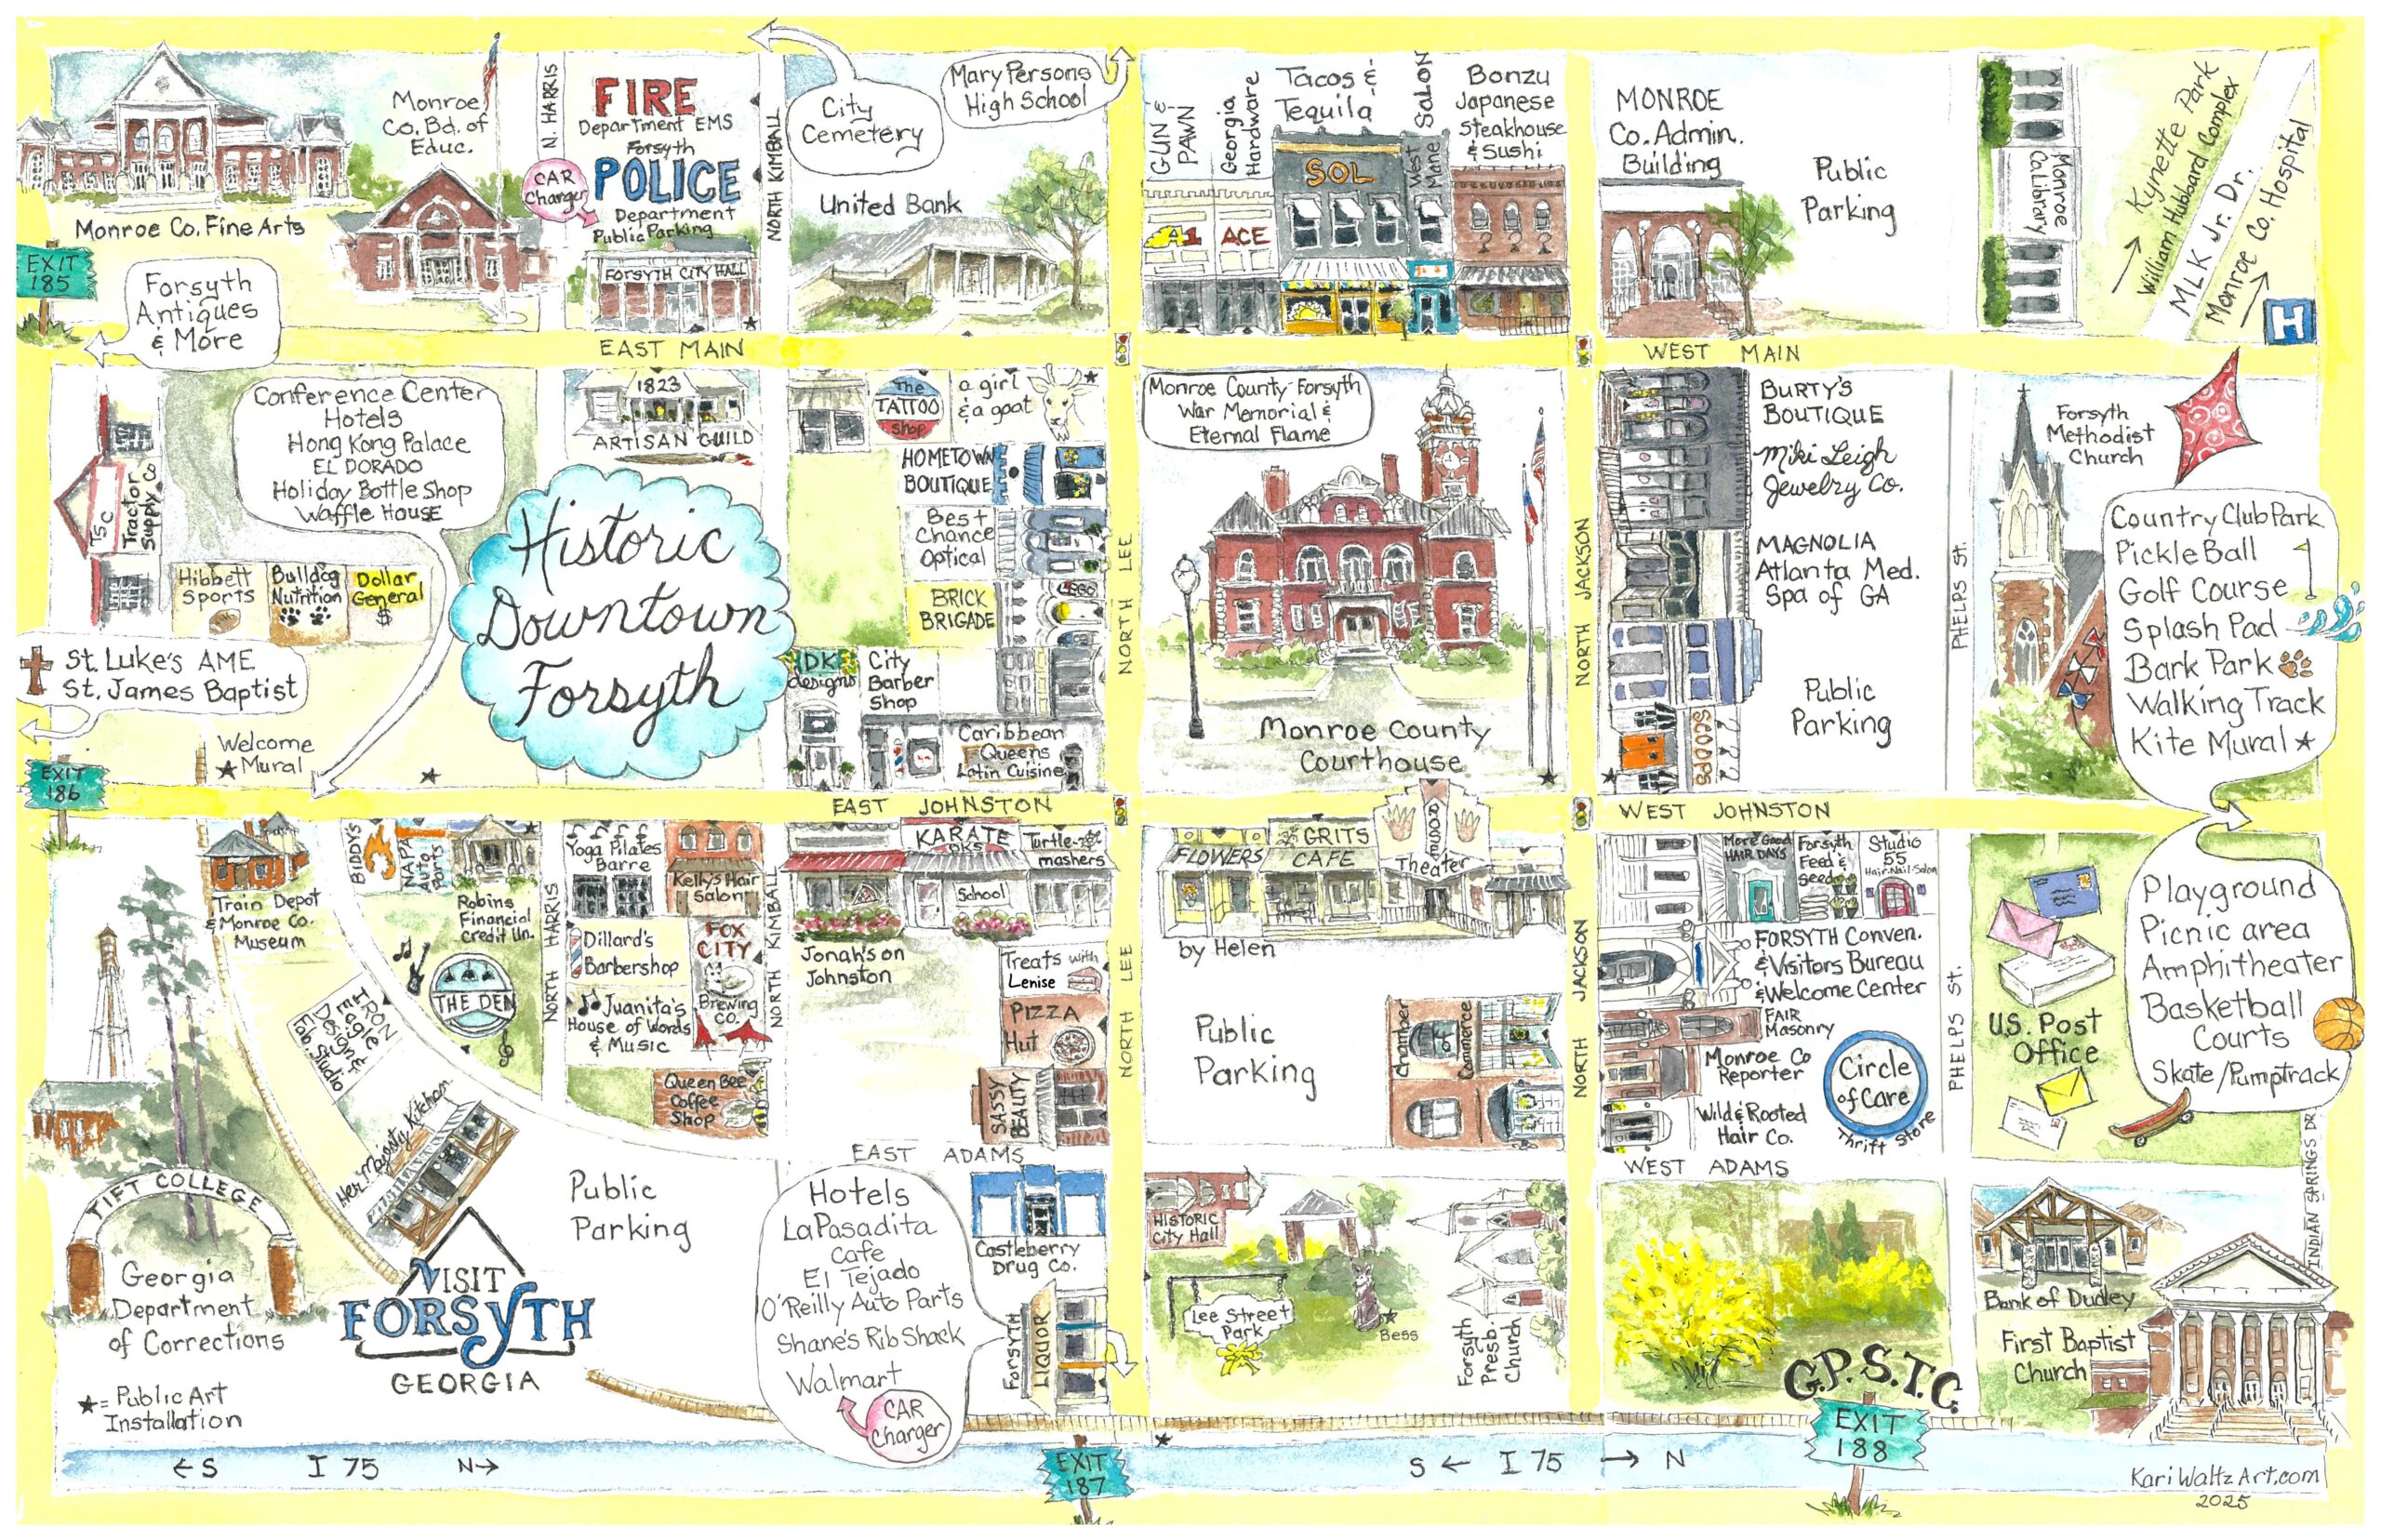 Monroe Co. Fine Arts
Monroe
Co. Bd. of
Educ.
N. HARRIS
FIRE
Department EMS
Forsyth
POLICE
Department
Public Parking
CAR
Charger
FORSYTH CITY HALL
NORTH KIMBALL
City
Cemetery
Mary Persons
High School
United Bank
GUN &
PAWN
Georgia
Hardware
Tacos &
Tequila
SALON
West
Mane
Bonzu
Japanese
Steakhouse
& Sushi
A1
ACE
SOL
MONROE
Co. Admin.
Building
Public
Parking
Monroe
Co. Library
Kynette Park
William Hubbard Complex
MLK Jr. Dr.
Monroe Co. Hospital
H
EXIT
185
Forsyth
Antiques
& More
EAST MAIN
WEST MAIN
TSC
Tractor
Supply Co
Conference Center
Hotels
Hong Kong Palace
EL DORADO
Holiday Bottle Shop
Waffle House
Hibbett
Sports
Bulldog
Nutrition
Dollar
General
$
1823
ARTISAN GUILD
Historic
Downtown
Forsyth
The
TATTOO
Shop
a girl
& a goat
HOMETOWN
BOUTIQUE
Best
Chance
Optical
BRICK
BRIGADE
LEGO
DK
designs
City
Barber
Shop
Caribbean
Queens
Latin Cuisine
NORTH LEE
Monroe County-Forsyth
War Memorial &
Eternal Flame
Monroe County
Courthouse
NORTH JACKSON
BURTY'S
BOUTIQUE
Miki Leigh
Jewelry Co.
MAGNOLIA
Atlanta Med.
Spa of GA
Public
Parking
SCOOPS
PHELPS St.
Forsyth
Methodist
Church
Country Club Park
Pickle Ball
Golf Course
Splash Pad
Bark Park
Walking Track
Kite Mural ★
St. Luke's AME
St. James Baptist
Welcome
★ Mural
EXIT
186
EAST JOHNSTON
WEST JOHNSTON
Train Depot
& Monroe Co.
Museum
BIDDY'S
NAPA
Auto
Parts
Robins
Financial
Credit Un.
IRON
Eagle
Design &
Fab. Studio
THE DEN
NORTH HARRIS
Yoga Pilates
Barre
Kelly's Hair
Salon
Dillard's
Barbershop
FOX
CITY
Brewing
CO.
Juanita's
House of Words
& Music
Queen Bee
Coffee
Shop
NORTH KIMBALL
KARATE
DKS
School
Turtle-
mashers
Jonah's on
Johnston
Treats with
Lenise
PIZZA
Hut
SASSY
BEAUTY
NORTH LEE
FLOWERS
by Helen
GRITS
CAFE
Theater
Public
Parking
Chamber
of
Commerce
NORTH JACKSON
More Good
HAIR DAYS
Forsyth
Feed &
Seed
Studio
55
Hair-Nail-Salon
FORSYTH Conven.
& Visitors Bureau
& Welcome Center
FAIR
Masonry
Monroe Co
Reporter
Wild & Rooted
Hair Co.
Circle
of Care
Thrift Store
PHELPS St.
U.S. Post
Office
Playground
Picnic area
Amphitheater
Basketball
Courts
Skate/Pumptrack
INDIAN SPRINGS DR
EAST ADAMS
WEST ADAMS
Her Majesty Kitchen
TIFT COLLEGE
Georgia
Department
of Corrections
★ = Public Art
Installation
VISIT
FORSYTH
GEORGIA
Public
Parking
Hotels
La Pasadita
Cafe
El Tejado
O'Reilly Auto Parts
Shane's Rib Shack
Walmart
CAR
Charger
Castleberry
Drug Co.
FORSYTH
LIQUOR
HISTORIC
City Hall
Lee Street
Park
Bess
Forsyth
Presb.
Church
G.P.S.T.C.
Bank of Dudley
First Baptist
Church
← S I 75 N →
EXIT
187
S ← I 75 → N
EXIT
188
KariWaltzArt.com
2025